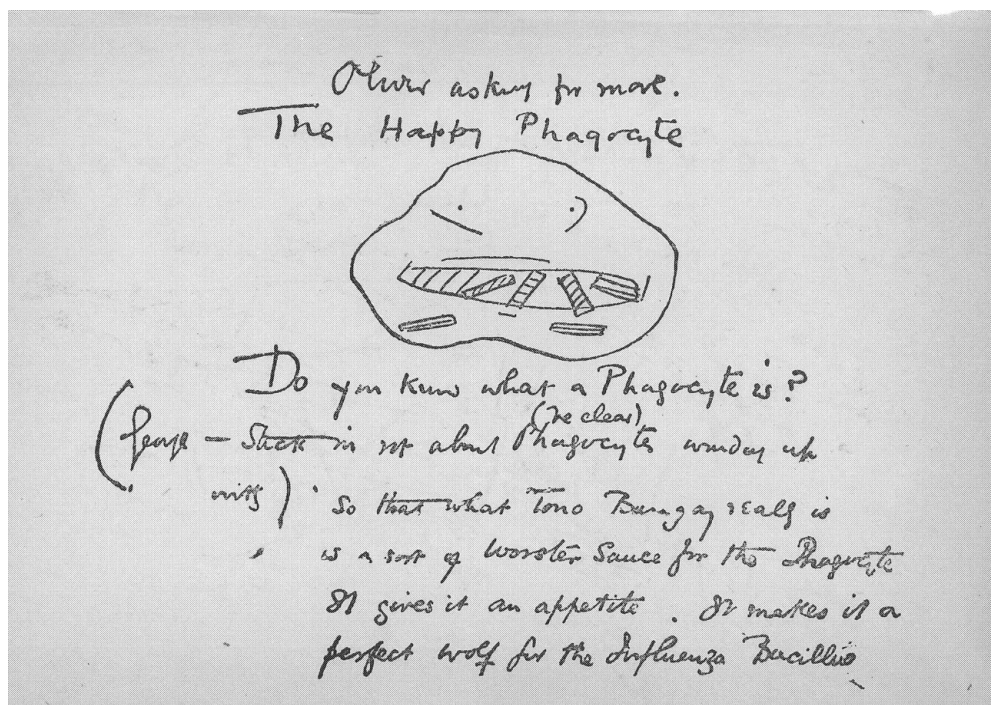 Oliver asking for more.
The Happy Phagocyte
Do you know what a Phagocyte is?
(be clear)
(George — Stick in rot about Phagocytes winding up
with)
So that what Tono Bungay really is
is a sort of Worster Sauce for the Phagocyte
It gives it an appetite. It makes it a
perfect wolf for the Influenza Bacillus